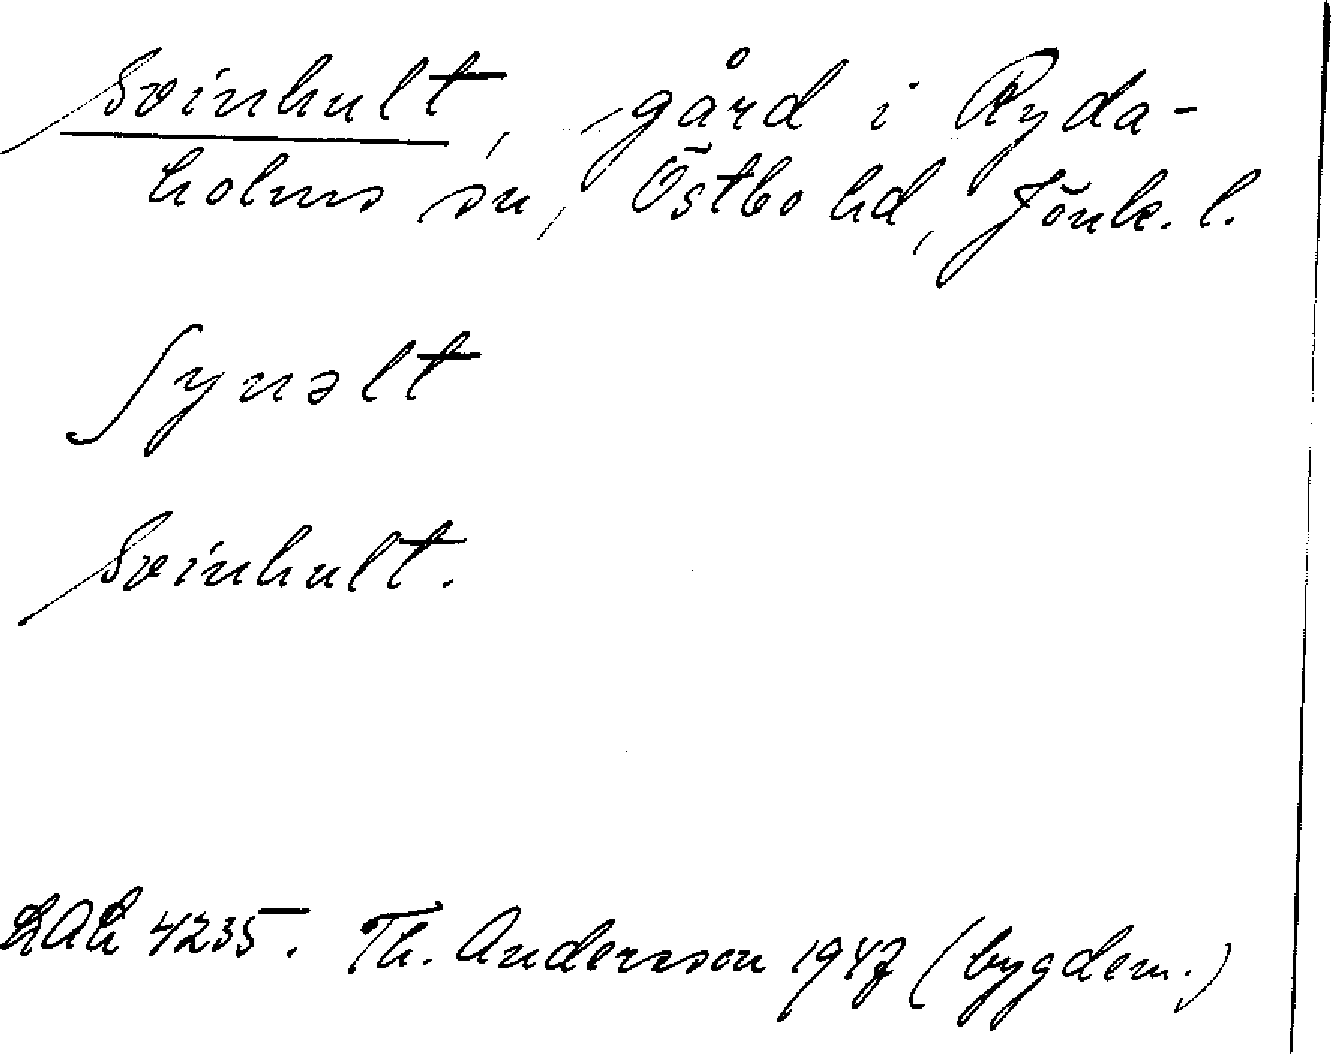 Svinhult, gård i Ryda-
holms sn, Östbo hd, Jönk. l.
Synəlt
Svinhult.
LAL 4235. Th. Andersson 1947 (bygdem.)